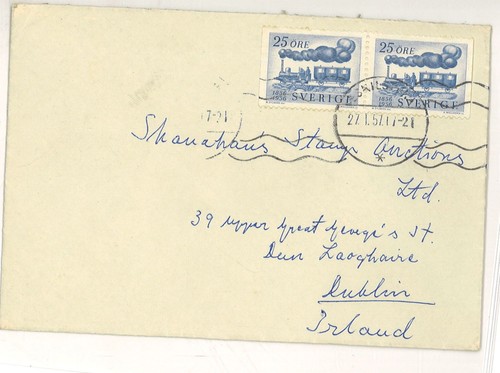 25 ÖRE 25 ÖRE
1856 1956 SVERIGE 1856 1956 SVERIGE
17-21
27.1.57.17-21
Shanahan's Stamp Auctions
Ltd.
39 upper Great George's St.
Dun Laoghaire
Dublin
Irland